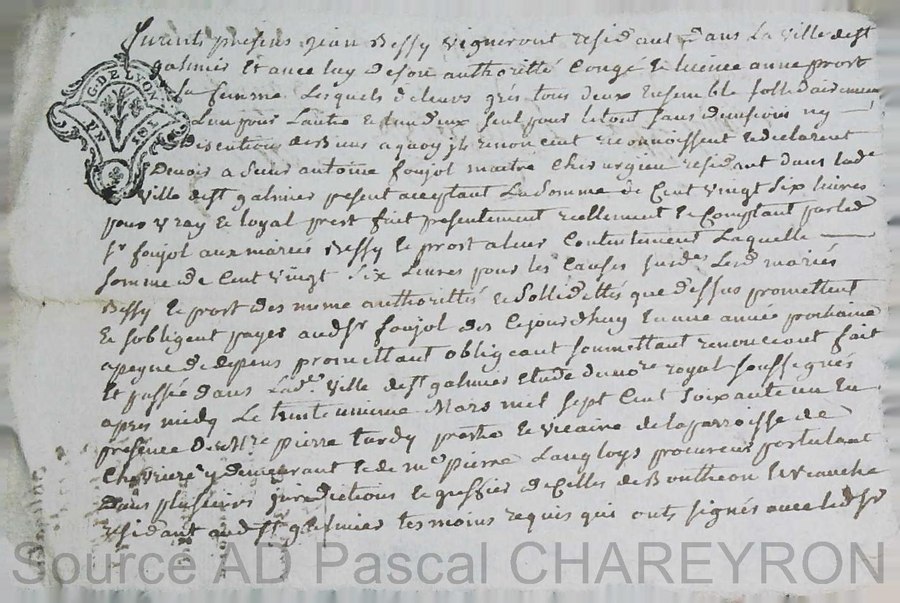 furent presens jean Bessy vigneront residant dans la ville de st
galmier et avec luy de son authoritté congé et licence anne prost
sa femme Lesquels de leurs grés tous deux Ensemble sollidairement
Lun pour Lautre et dun deux seul pour le tout sans division ny
discution de Biens a quoy jls renoncent reconnoissent et declarent
Devoir a sieur antoine foujol maitre chirurgien residant dans lade
ville de st galmier present acceptant La somme de Cent vingt six livres
pour vray et loyal prest fait presentement reellement et Comptant par led
sr foujol aux mariés Bessy et prost a leur Contentement Laquelle
somme de Cent vingt six Livres pour les Causes susdes Lesd mariés
Bessy et prost des meme authorittés et sollidittés que dessus promettent
et sobligent payer aud sr foujol des Cejourdhuy en une année prochaine
a peyne de depens promettant obligeant soumettant renonceont fait
et passée dans Lade ville de st galmier Etude du nore royal soussignés
apres midy Le trente unieme Mars mil sept Cent soixante un En
présence de Mre pierre tardy pretre et vicaire de la parroisse de
Chevriere y demeurant et de me pierre Langloys procureur postulant
dans plusieurs jurisdictions et greffier de Celles de Bouthéon et veauche
residant aud st galmier tesmoins requis qui onts signés avec led sr
G. DE LYON
UN
SOL
Source AD Pascal CHAREYRON